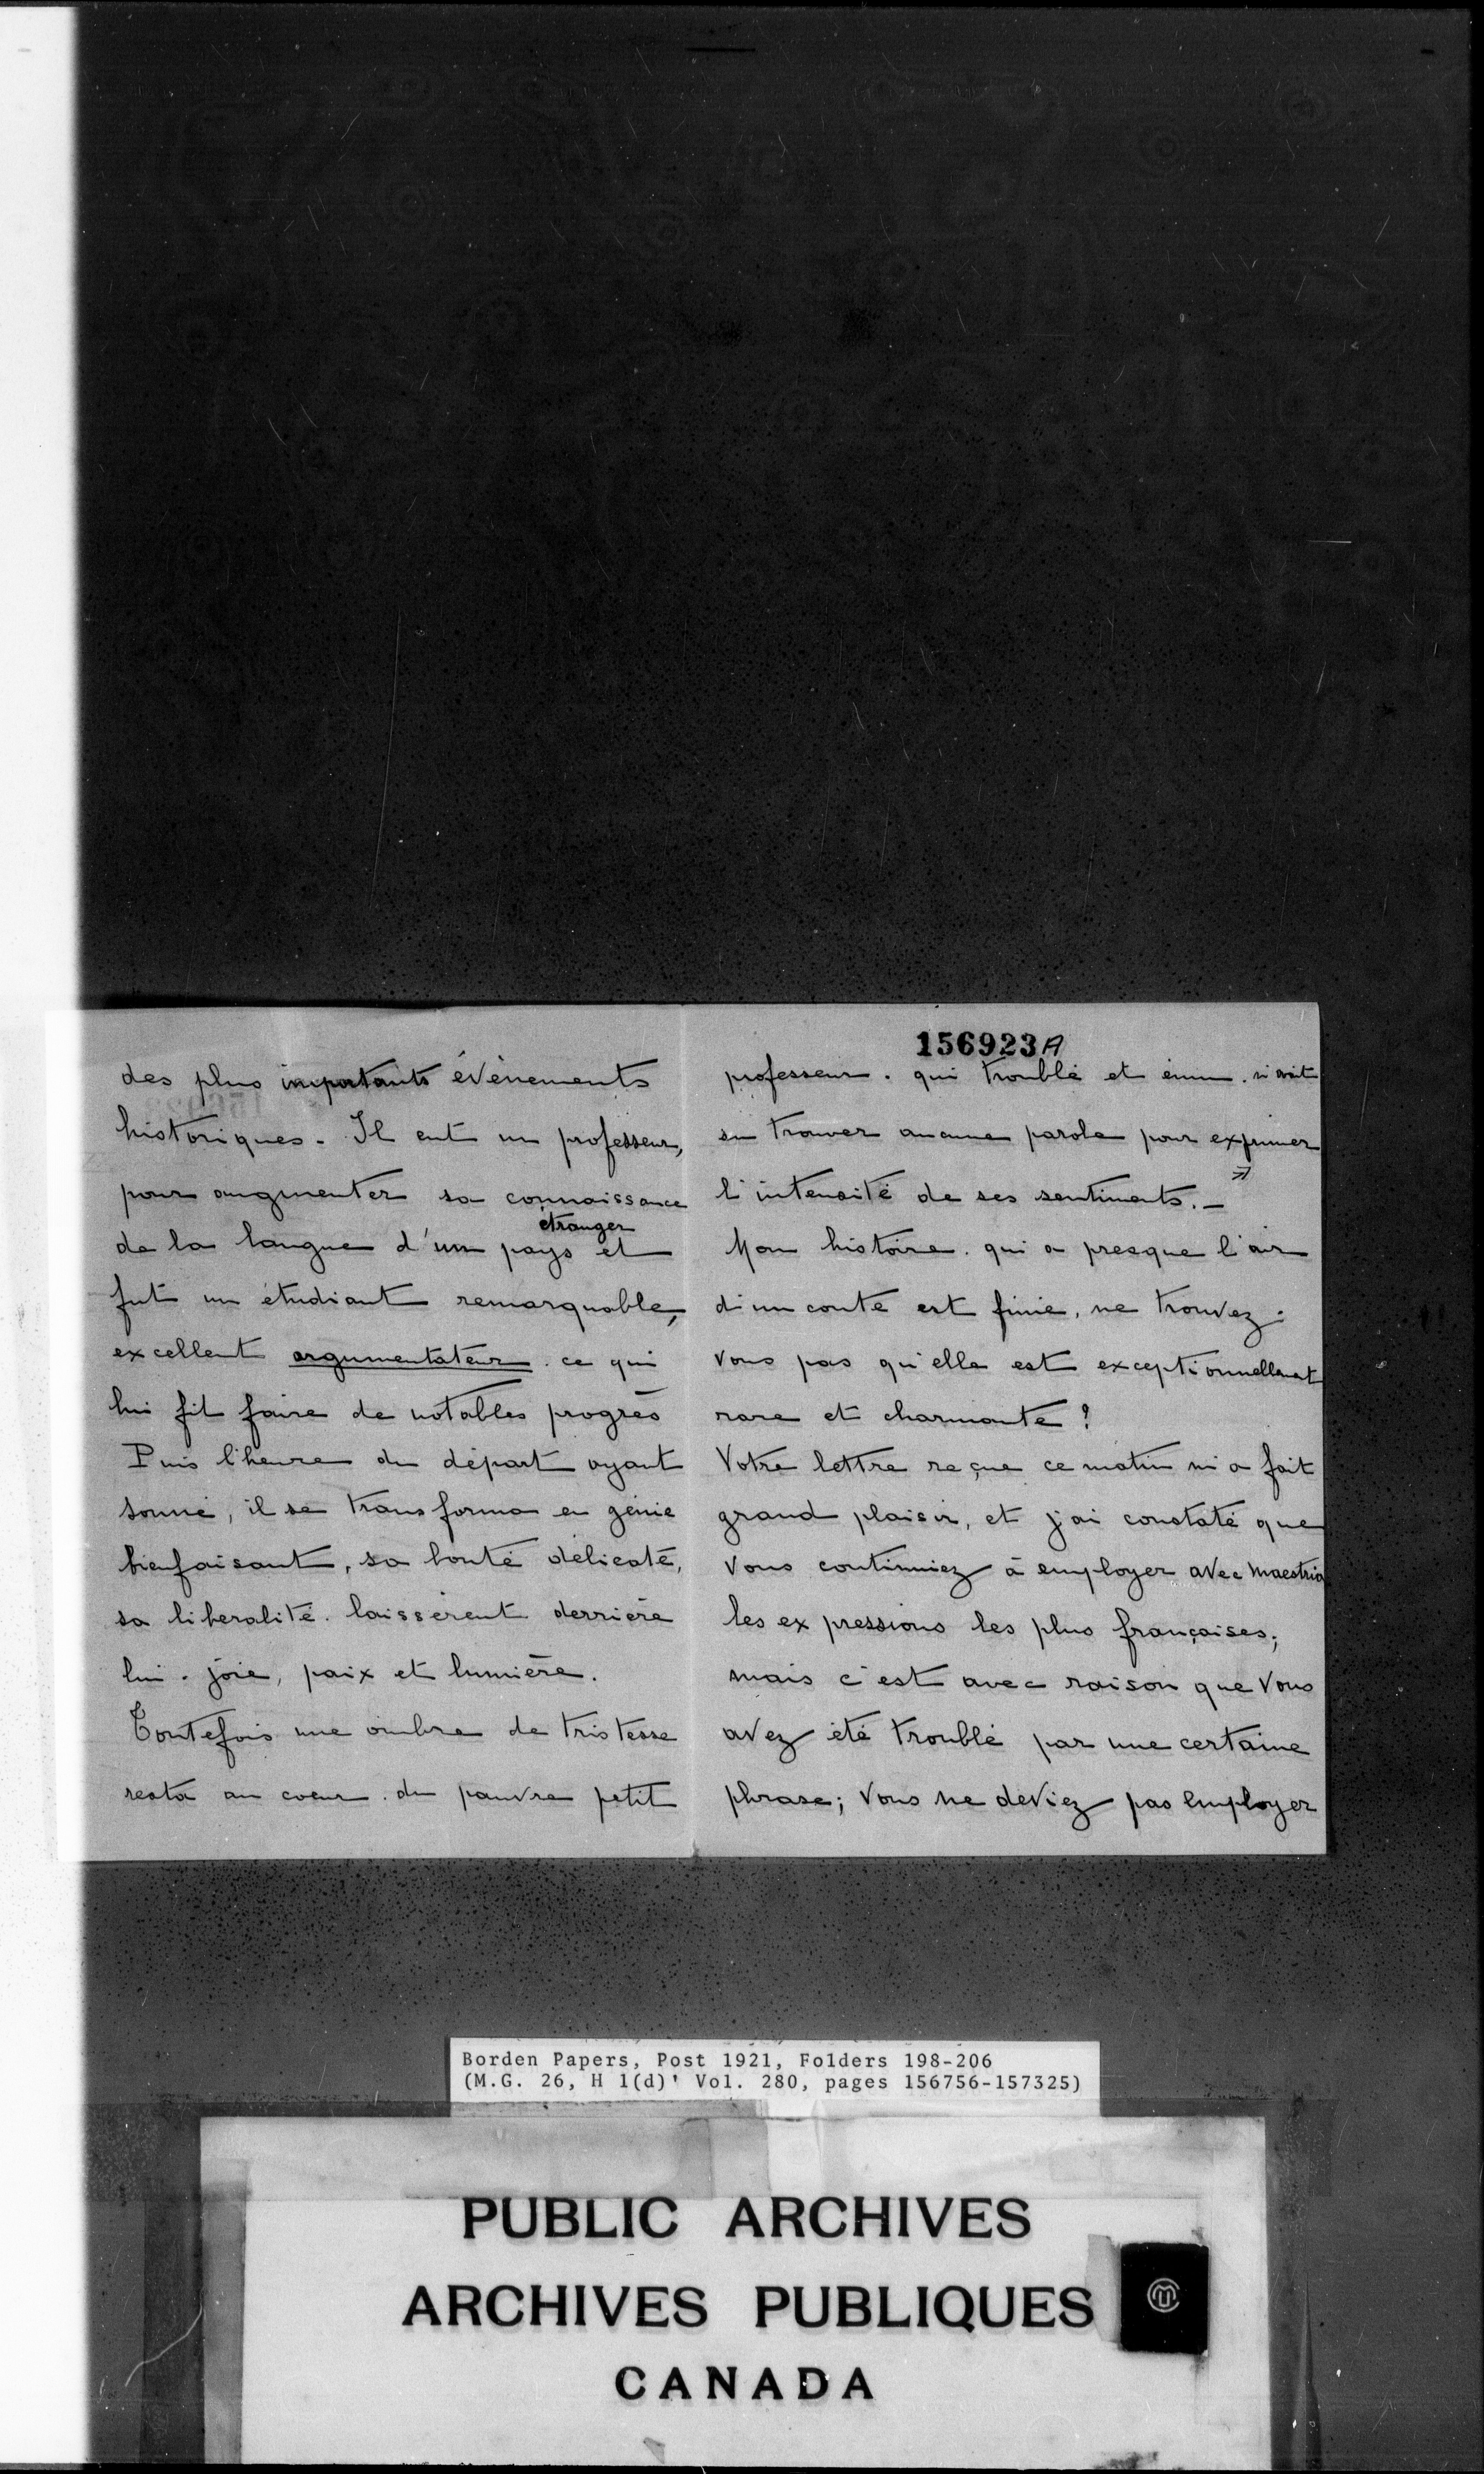 des plus importants évènements
historiques. Il eut un professeur,
pour augmenter sa connaissance
étranger
de la langue d'un pays et
fut un étudiant remarquable,
excellent argumentateur. ce qui
lui fit faire de notables progrès
Puis l'heure du départ ayant
sonné, il se transforma en génie
bienfaisant, sa bonté délicate,
sa liberalité. laissèrent derrière
lui. joie, paix et lumière.
Toutefois une ombre de tristesse
resta au coeur. du pauvre petit
156923A
professeur. qui troublé et ému. n'avait
su trouver aucune parole pour exprimer
l'intensité de ses sentiments. _ »
Mon histoire. qui a presque l'air
d'un conte est finie, ne trouvez-
vous pas qu'elle est exceptionnellement
rare et charmante ?
Votre lettre reçue ce matin m'a fait
grand plaisir, et j'ai constaté que
vous continuiez à employer avec maestria
les expressions les plus françaises;
mais c'est avec raison que vous
avez été troublé par une certaine
phrase; vous ne deviez pas employer
Borden Papers, Post 1921, Folders 198-206
(M.G. 26, H 1(d)' Vol. 280, pages 156756-157325)
PUBLIC ARCHIVES
ARCHIVES PUBLIQUES
CANADA